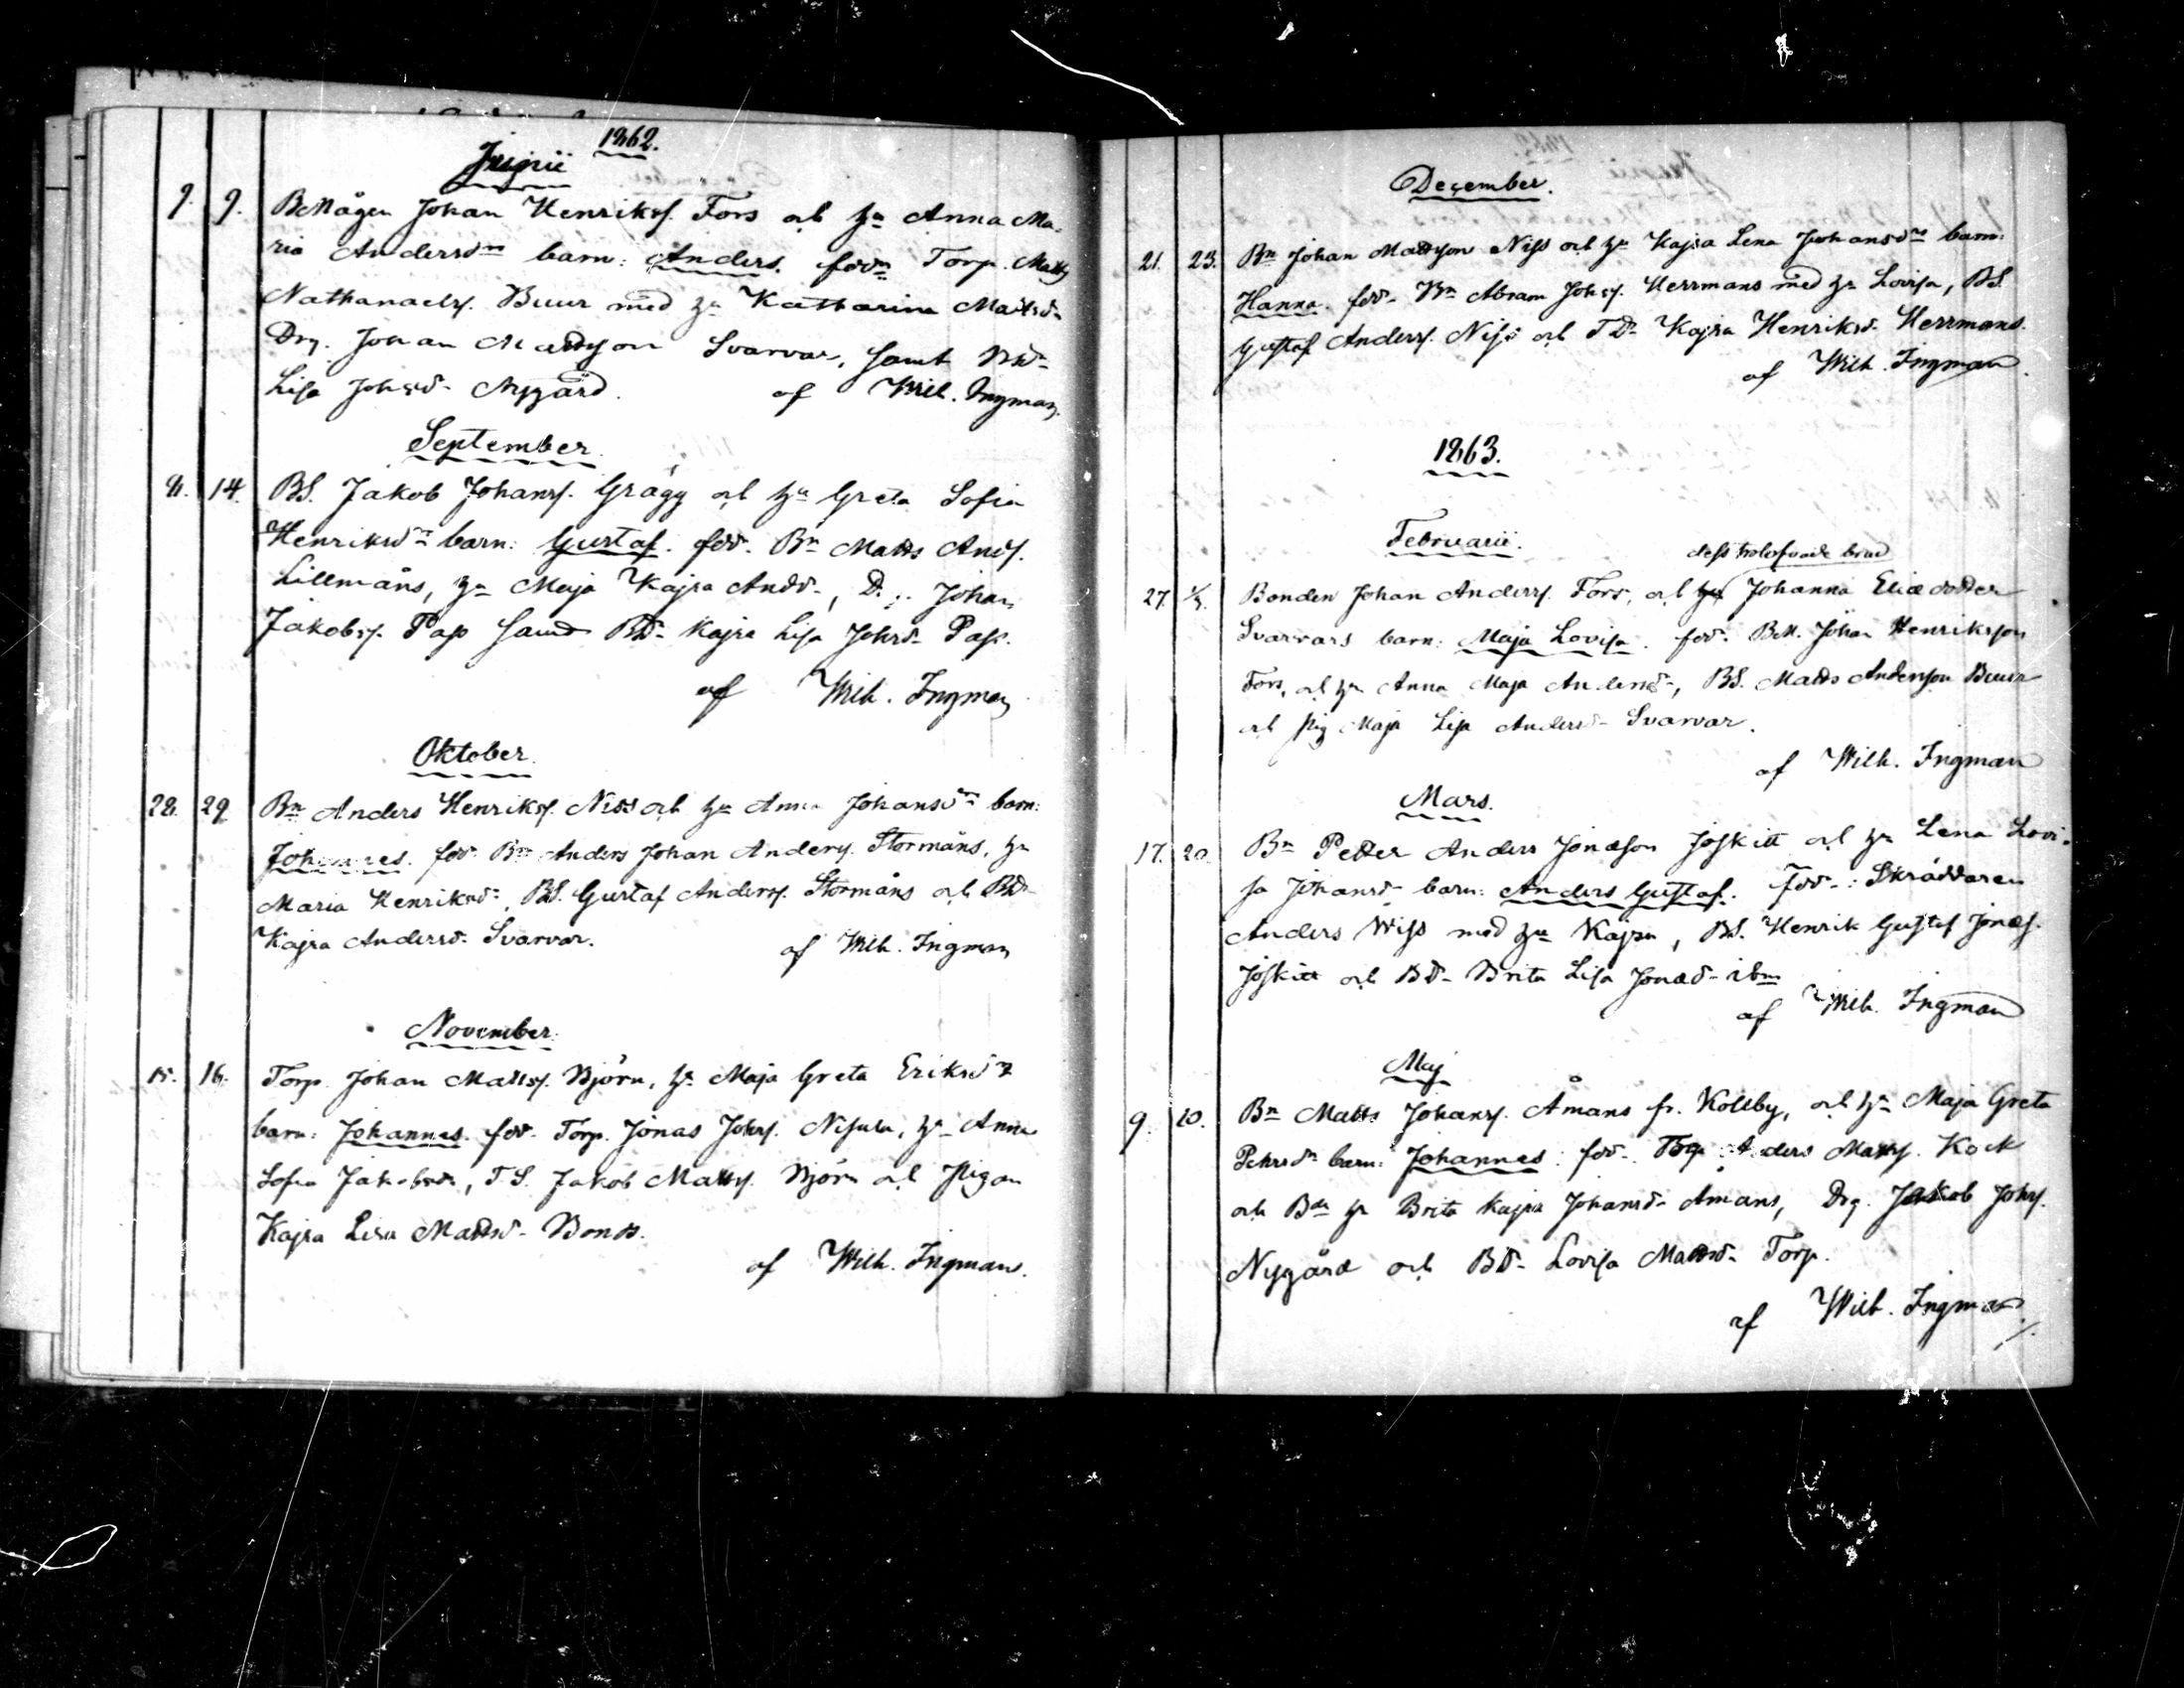 1862.
Junii
9. 9. BMågen Johan Henriksf. Fors och hu Anna Ma-
ria Andersdrs barn: Anders. fdd. Torp. Matts
Nathanaelsf. Buur med hu Katharina Mattsdr
Drg. Johan Mattsson Svarvar, samt BD.
Lisa Johsdr Nygård. af Wilh. Ingman.
September
11. 14. BS. Jakob Johansf. Grägg och hu Greta Sofia
Henriksdrs barn: Gustaf. fdd. Bn Matts Andf.
Lillmåns, hu Maja Kajsa Andd-, Johan
Jakobsf. Pass samt BD- Kajsa Lisa Johsd- Pass.
af Wilh. Ingman
Oktober.
28. 29 Bn Anders Henriksf. Niss och hu Anna Johansdrs barn:
Johannes. fdd. Bn Anders Johan Andersf. Stormåns, hu
Maria Henriksd-, BS. Gustaf Andersf. Stormåns och BD-
Kajsa Andersd- Svarvar. af Wilh. Ingman
November.
15. 16. Torp. Johan Mattsf. Björn, hu Maja Greta Eriksdrs
barn: Johannes. fdd. Torp. Jonas Johsf. Nisula, hu Anna
Sofia Jakobsdr, T.S. Jakob Mattsf. Björn och Pigan
Kajsa Lisa Mattsd- Bonds.
af Wilh. Ingman.
December.
21. 23. Bn Johan Mattsson Niss och hu Kajsa Lena Johansdrs barn:
Hanna. fdd- Bn Abram Johsf. Herrmans med hu Lovisa, BS.
Gustaf Andersf. Niss och TD- Kajsa Henriksd- Herrmans.
af Wilh. Ingman.
1863.
Februarii.
dess trolofvade brud
27. 1/3. Bonden Johan Andersf. Fors, och hu Johanna Eliædotter
Svarvars barn: Maja Lovisa. fdd. BM. Johan Henriksson
Fors, och hu Anna Maja Andersd-, BS. Matts Andersson Buur
och pig Maja Lisa Andersd- Svarvar.
af Wilh. Ingman
Mars.
17. 20. Bn Petter Anders Jonasson Joskitt och hu Lena Lovi-
sa Johansd- barn: Anders Gustaf. fdd-: Skräddaren
Anders Wiss med hu Kajsa, BS. Henrik Gustaf Jonasf.
Joskitt och BD- Brita Lisa Jonæd- ibm
af Wilh. Ingman
Maj
9. 10. Bn Matts Johansf. Åmans fr. Kållby, och hu Maja Greta
Pehrsdr barn: Johannes: fdd-. Torp Anders Mattsf. Kock
och Bds hu Brita Kajsa Johansd- Åmans, Drg. Jakob Johsf.
Nygård och BD- Lovisa Mattsd- Torp.
af Wilh. Ingman